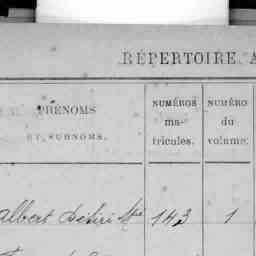 RÉPERTOIRE A
PRÉNOMS
ET SURNOMS.
NUMÉROS
ma-
tricules.
NUMÉRO
du
volume.
albert Désiré 143 1